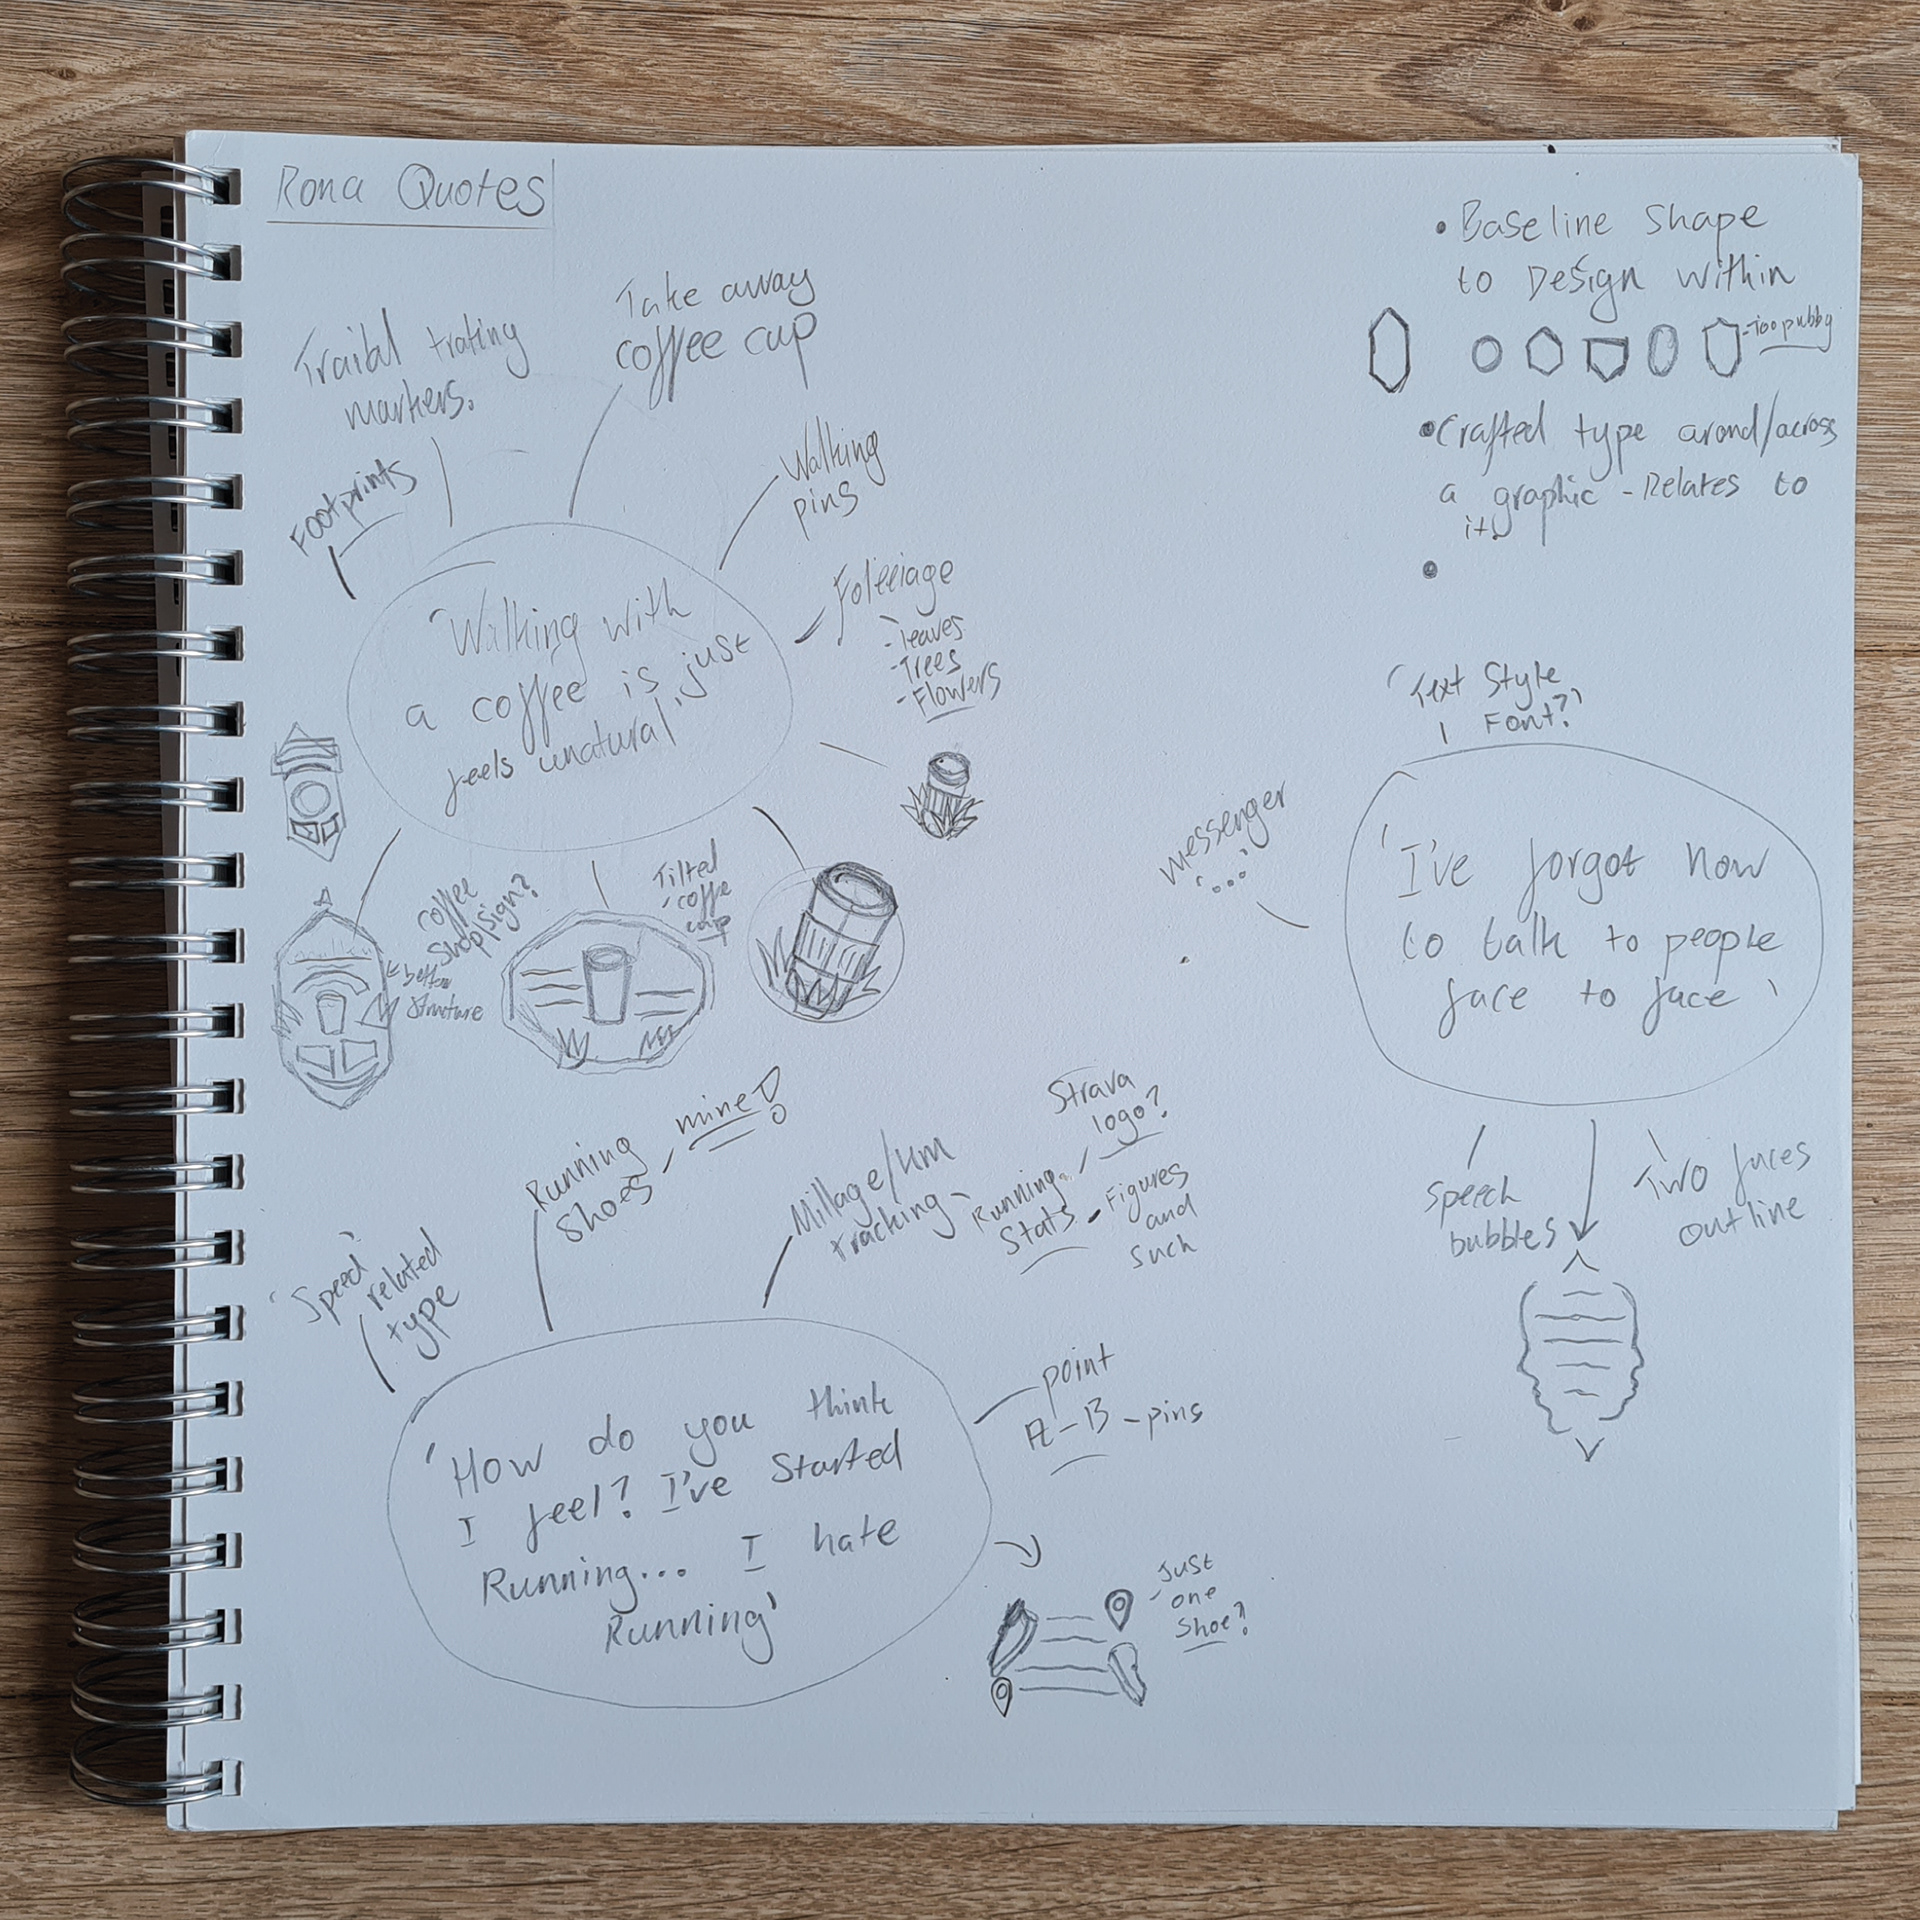 Rona Quotes
Traibl trating
markers.
Take away
coffee cup
Footprints
Walking
pins
Foleeiage
- leaves
- Trees
- Flowers
'Walking with
a coffee is just
feels unatural'
coffee
shop sign?
better
structure
Tilted
- coffee
cup
• Baseline shape
to Design within
- Too pubby
• Crafted type arond/across
a graphic - Relates to
it.
•
'Text Style
Font?'
messenger
'...'
'I've forgot how
to talk to people
face to face'
Speech
bubbles
Two faces
outline
'Speed'
related
type
Running
Shoes
mine?
Millage/km
tracking
Running
Stats
Strava
logo?
Figures
and
such
'How do you think
I feel? I've Started
Running... I hate
Running'
point
A-B - pins
Just
- one
Shoe?